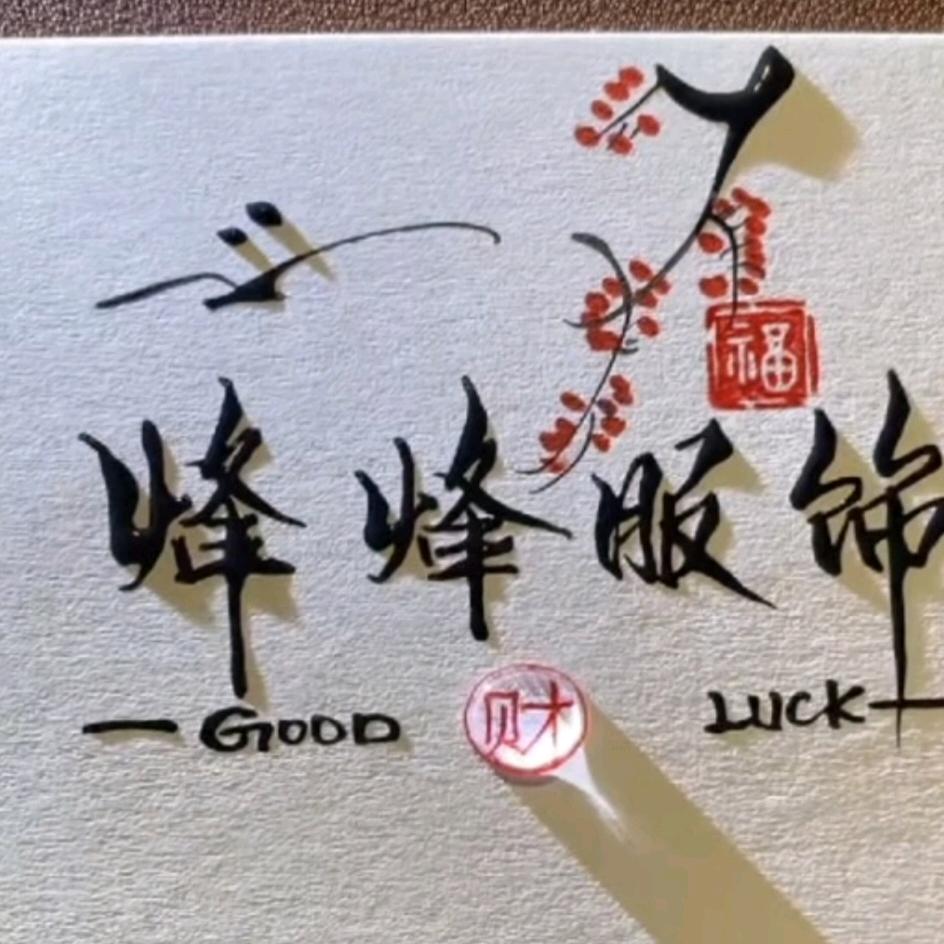 福
峰峰服饰
GOOD 财 LUCK